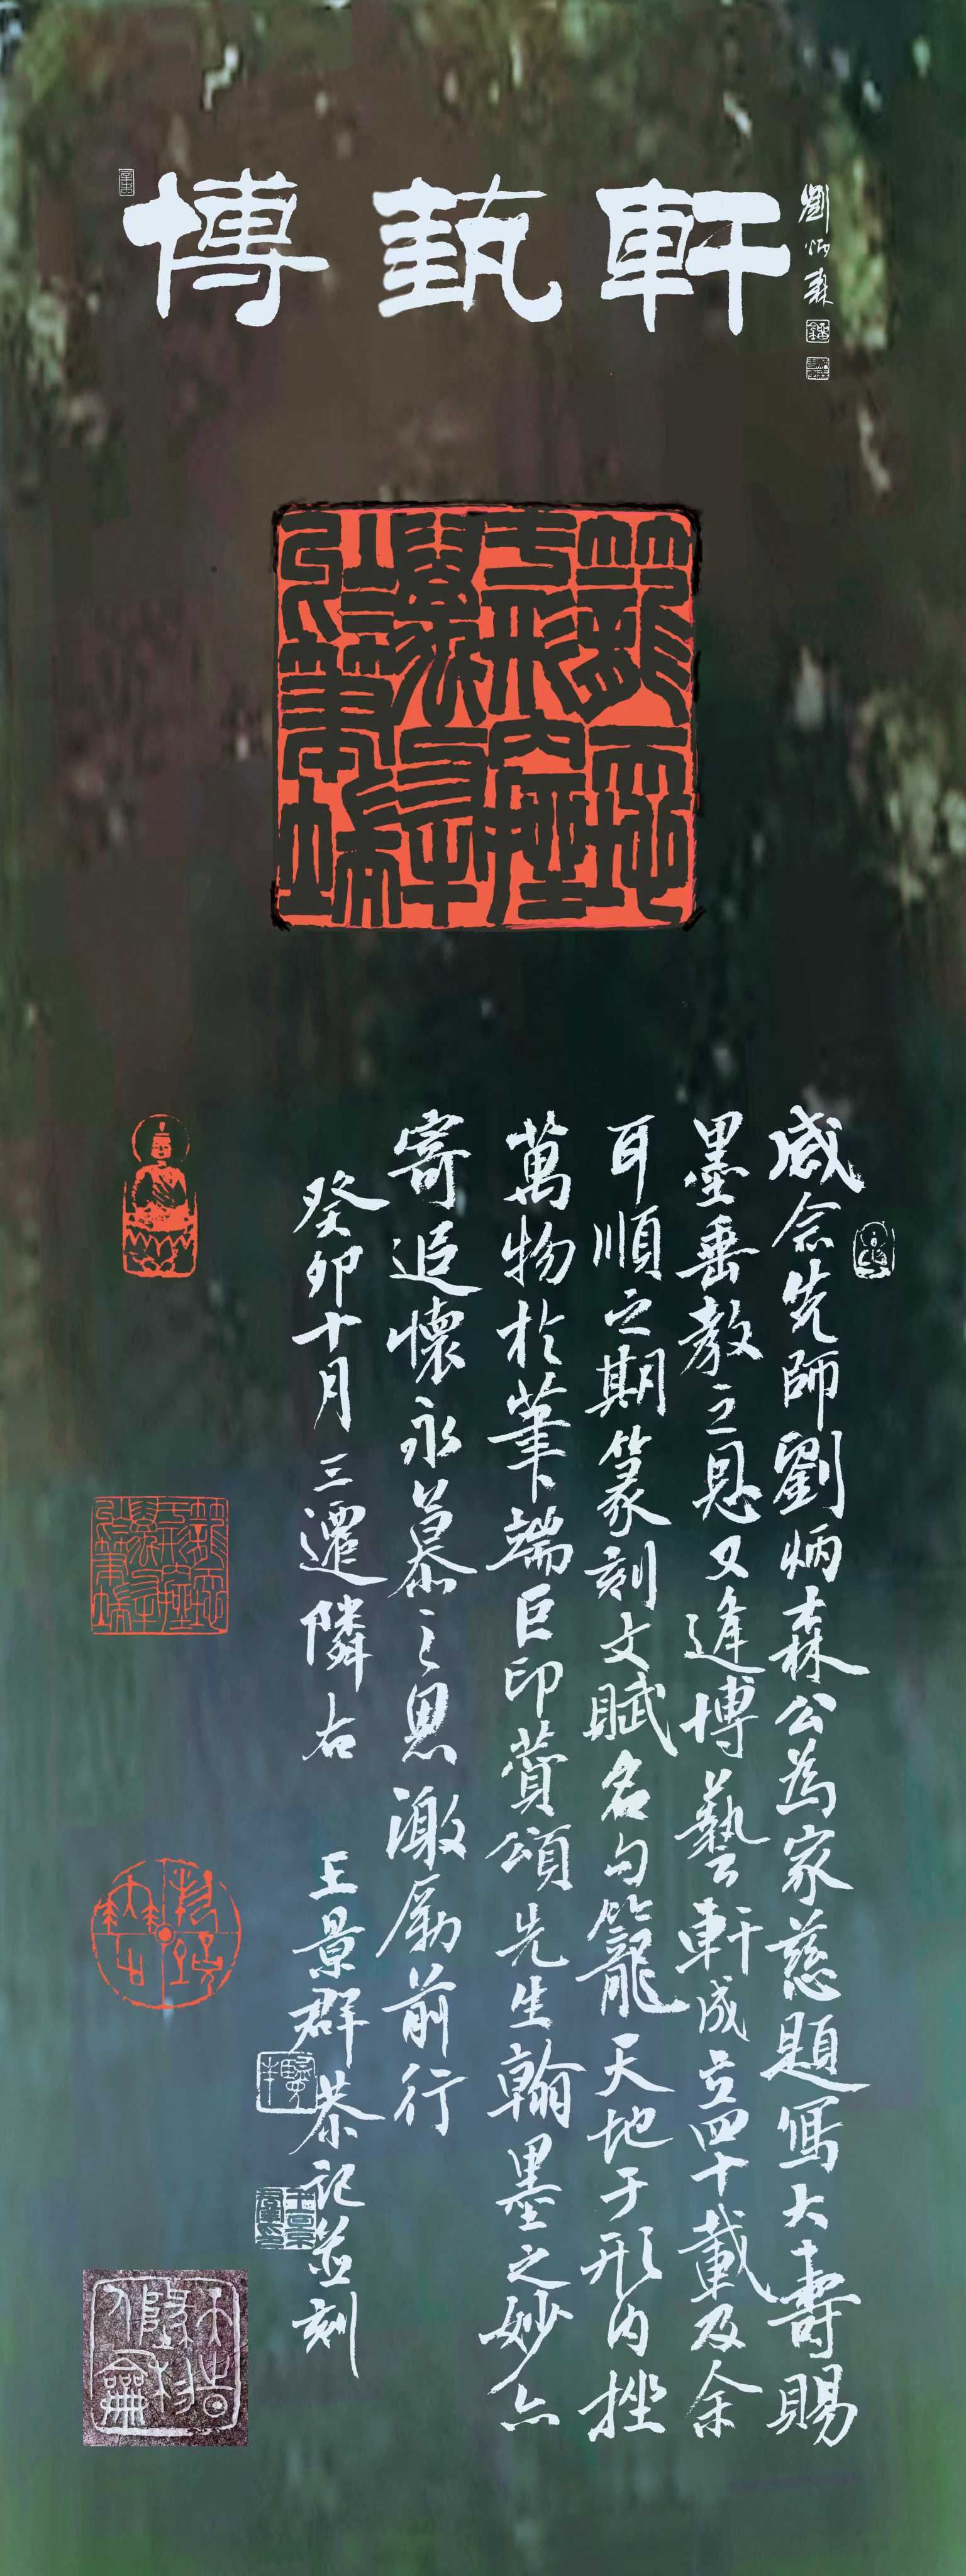 博埶軒
劉炳森
籠天地
于形內挫
萬物
於筆端
感念先師劉炳森公為家慈題寫大壽賜
墨垂教之恩又逢博藝軒成立四十載及余
耳順之期篆刻文賦名句籠天地于形內挫
萬物於筆端巨印頌先生翰墨之妙亦
寄追懷永慕之思激励前行
癸卯十月三遷隣右 王景群恭記並刻